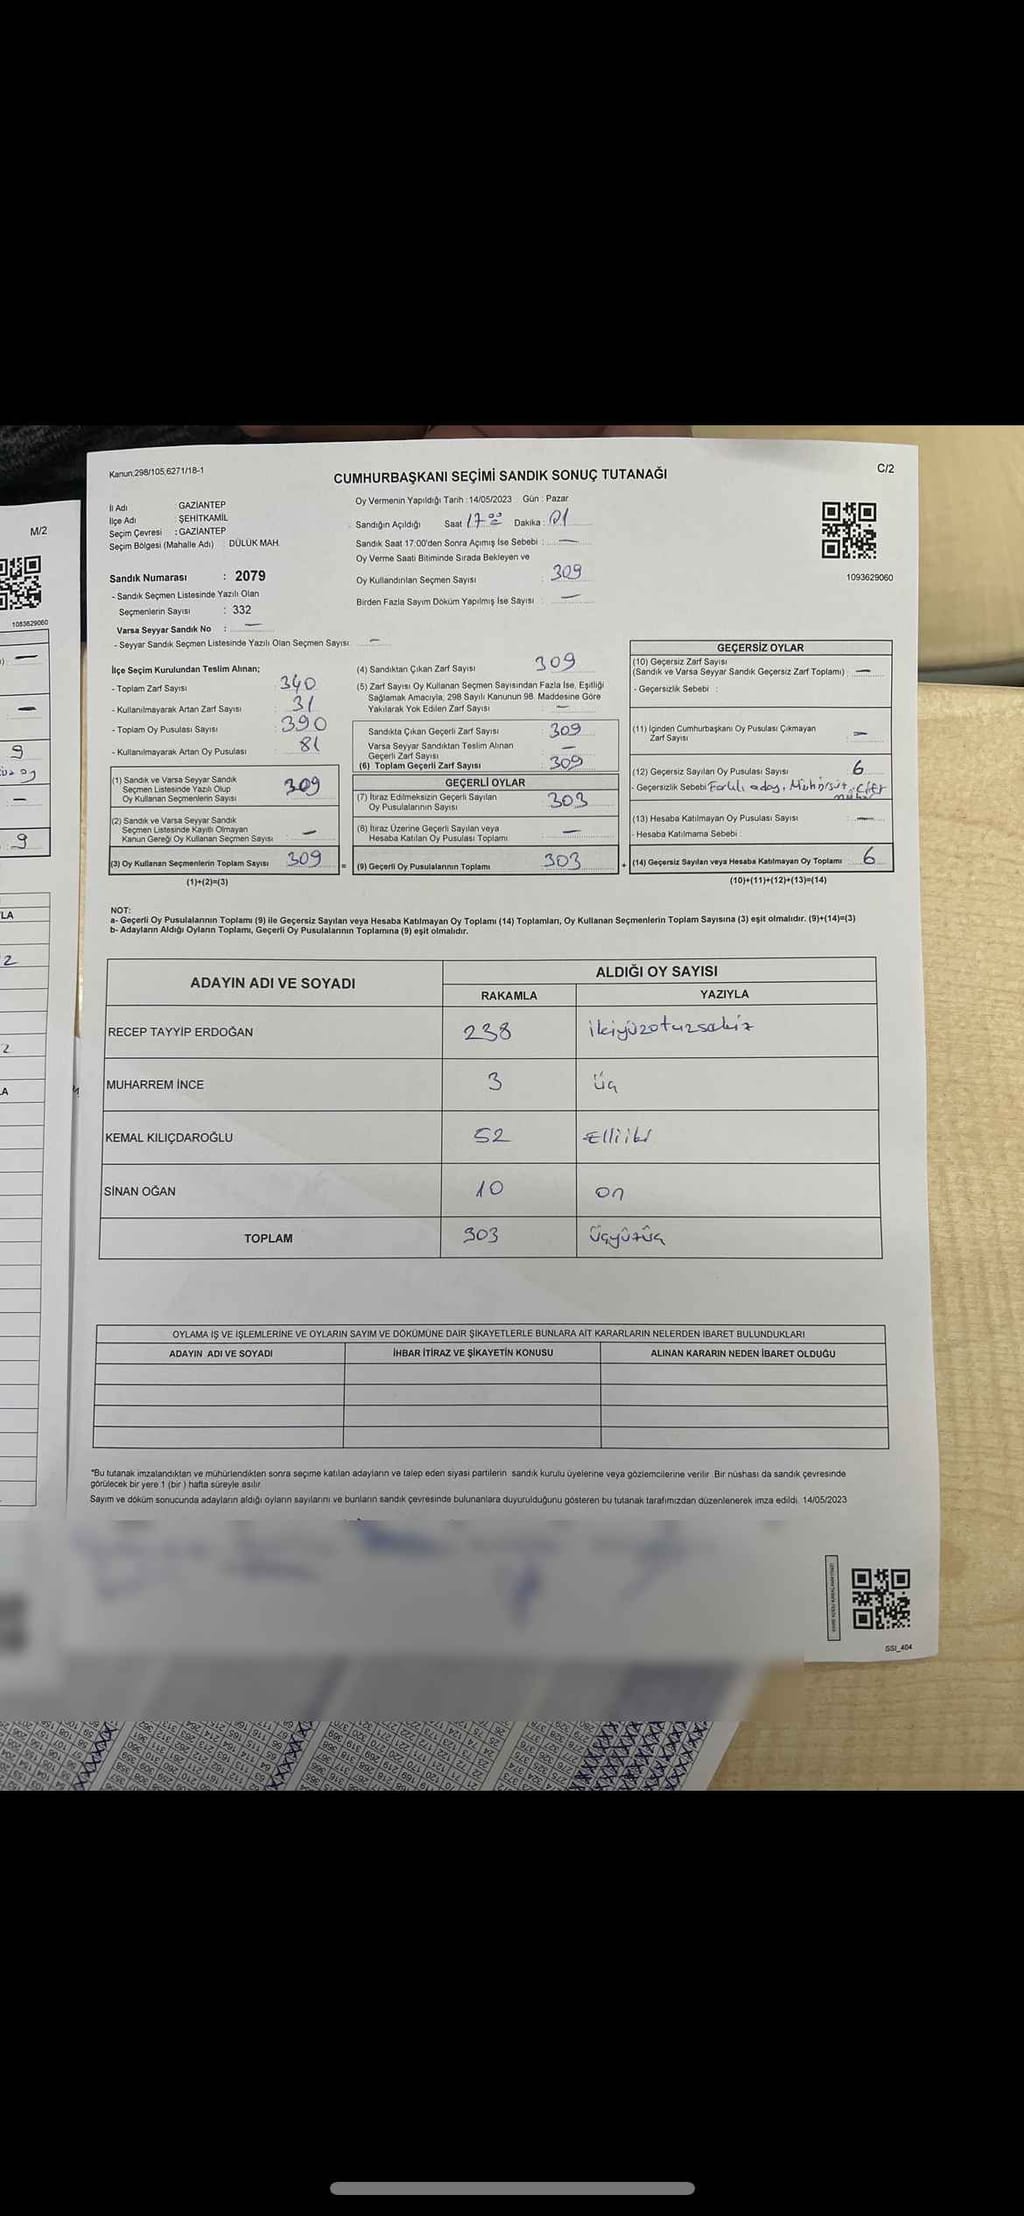 Kanun;298/105;6271/18-1
C/2
CUMHURBAŞKANI SEÇİMİ SANDIK SONUÇ TUTANAĞI
İl Adı : GAZİANTEP
İlçe Adı : ŞEHİTKAMİL
Seçim Çevresi : GAZİANTEP
Seçim Bölgesi (Mahalle Adı) : DÜLÜK MAH.
Sandık Numarası : 2079
- Sandık Seçmen Listesinde Yazılı Olan
Seçmenlerin Sayısı : 332
Varsa Seyyar Sandık No : —
- Seyyar Sandık Seçmen Listesinde Yazılı Olan Seçmen Sayısı —
Oy Vermenin Yapıldığı Tarih : 14/05/2023 Gün : Pazar
Sandığın Açıldığı Saat 17 00 Dakika : 01
Sandık Saat 17:00'den Sonra Açımış İse Sebebi : —
Oy Verme Saati Bitiminde Sırada Bekleyen ve
Oy Kullandırılan Seçmen Sayısı : 309
Birden Fazla Sayım Döküm Yapılmış İse Sayısı : —
1093629060
İlçe Seçim Kurulundan Teslim Alınan;
- Toplam Zarf Sayısı : 340
- Kullanılmayarak Artan Zarf Sayısı : 31
- Toplam Oy Pusulası Sayısı : 390
- Kullanılmayarak Artan Oy Pusulası : 81
(1) Sandık ve Varsa Seyyar Sandık
Seçmen Listesinde Yazılı Olup
Oy Kullanan Seçmenlerin Sayısı 309
(2) Sandık ve Varsa Seyyar Sandık
Seçmen Listesinde Kayıtlı Olmayan
Kanun Gereği Oy Kullanan Seçmen Sayısı —
(3) Oy Kullanan Seçmenlerin Toplam Sayısı 309
(1)+(2)=(3)
(4) Sandıktan Çıkan Zarf Sayısı 309
(5) Zarf Sayısı Oy Kullanan Seçmen Sayısından Fazla İse, Eşitliği
Sağlamak Amacıyla, 298 Sayılı Kanunun 98. Maddesine Göre
Yakılarak Yok Edilen Zarf Sayısı —
Sandıkta Çıkan Geçerli Zarf Sayısı 309
Varsa Seyyar Sandıktan Teslim Alınan
Geçerli Zarf Sayısı —
(6) Toplam Geçerli Zarf Sayısı 309
GEÇERLİ OYLAR
(7) İtiraz Edilmeksizin Geçerli Sayılan
Oy Pusulalarının Sayısı 303
(8) İtiraz Üzerine Geçerli Sayılan veya
Hesaba Katılan Oy Pusulası Toplamı —
= (9) Geçerli Oy Pusulalarının Toplamı 303
GEÇERSİZ OYLAR
(10) Geçersiz Zarf Sayısı
(Sandık ve Varsa Seyyar Sandık Geçersiz Zarf Toplamı) : —
- Geçersizlik Sebebi :
(11) İçinden Cumhurbaşkanı Oy Pusulası Çıkmayan
Zarf Sayısı : —
(12) Geçersiz Sayılan Oy Pusulası Sayısı 6
- Geçersizlik Sebebi Farklı aday,
(13) Hesaba Katılmayan Oy Pusulası Sayısı : —
- Hesaba Katılmama Sebebi :
+ (14) Geçersiz Sayılan veya Hesaba Katılmayan Oy Toplamı 6
(10)+(11)+(12)+(13)=(14)
NOT:
a- Geçerli Oy Pusulalarının Toplamı (9) ile Geçersiz Sayılan veya Hesaba Katılmayan Oy Toplamı (14) Toplamları, Oy Kullanan Seçmenlerin Toplam Sayısına (3) eşit olmalıdır. (9)+(14)=(3)
b- Adayların Aldığı Oyların Toplamı, Geçerli Oy Pusulalarının Toplamına (9) eşit olmalıdır.
ADAYIN ADI VE SOYADI
ALDIĞI OY SAYISI
RAKAMLA YAZIYLA
RECEP TAYYİP ERDOĞAN 238 ikiyüzotuzsekiz
MUHARREM İNCE 3 üç
KEMAL KILIÇDAROĞLU 52 Elliiki
SİNAN OĞAN 10 on
TOPLAM 303 üçyüzüç
OYLAMA İŞ VE İŞLEMLERİNE VE OYLARIN SAYIM VE DÖKÜMÜNE DAİR ŞİKAYETLERLE BUNLARA AİT KARARLARIN NELERDEN İBARET BULUNDUKLARI
ADAYIN ADI VE SOYADI İHBAR İTİRAZ VE ŞİKAYETİN KONUSU ALINAN KARARIN NEDEN İBARET OLDUĞU
*Bu tutanak imzalandıktan ve mühürlendikten sonra seçime katılan adayların ve talep eden siyasi partilerin sandık kurulu üyelerine veya gözlemcilerine verilir. Bir nüshası da sandık çevresinde
görülecek bir yere 1 (bir ) hafta süreyle asılır.
Sayım ve döküm sonucunda adayların aldığı oyların sayılarını ve bunların sandık çevresinde bulunanlara duyurulduğunu gösteren bu tutanak tarafımızdan düzenlenerek imza edildi. 14/05/2023
SSİ_404
M/2
1083629060
9
9
LA
2
2
A